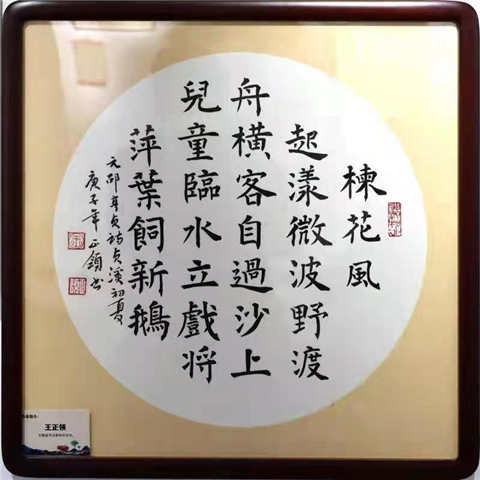 楝花風
起漾微波野渡
舟橫客自過沙上
兒童臨水立戲将
萍葉飼新鵝
元邵亨貞詩貞溪初夏
庚子年 正領书
王正领